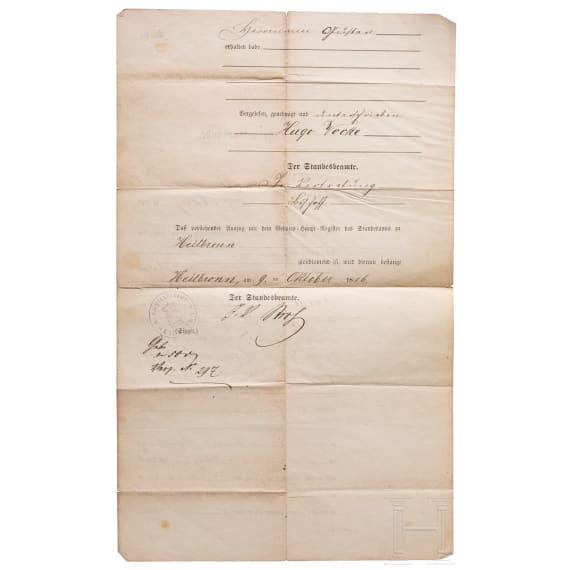 Herrmann Gustav
erhalten habe.
Vorgelesen, genehmigt und unterschrieben
Hugo Vocke
Der Standesbeamte.
In Vertretung
Bischoff
Daß vorstehender Auszug mit dem Geburts-Haupt-Register des Standesamts zu
Heilbronn
gleichlautend ist, wird hiermit bestätigt.
Heilbronn, am 9. ten Oktober 1886.
Der Standesbeamte.
(Siegel.)
J. V.
Geb.
N. 297
H